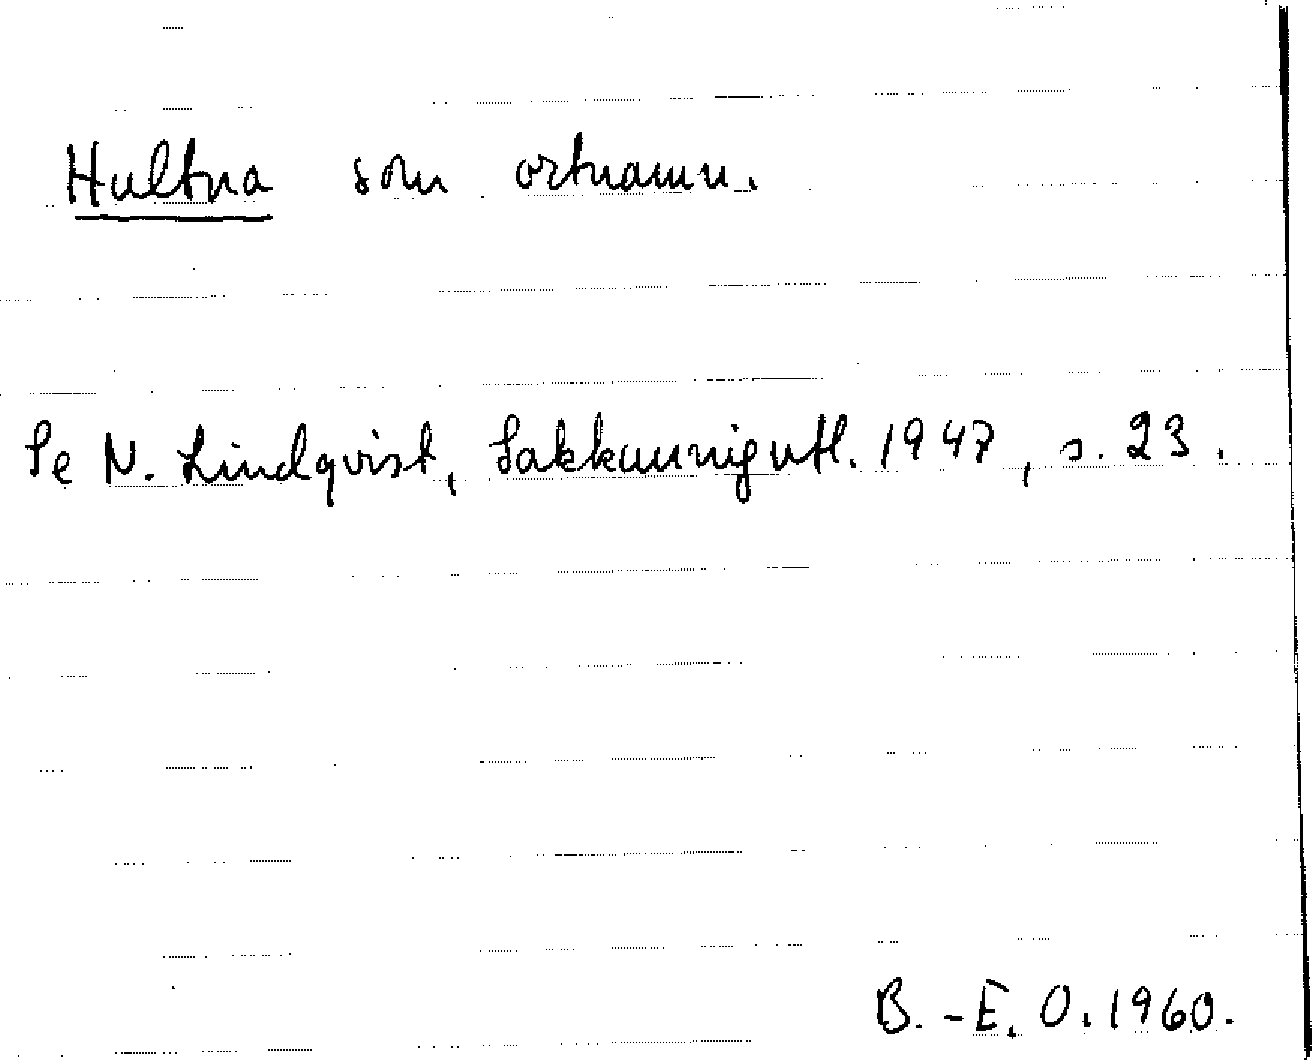 Hultna som ortnamn.
Se N. Lindqvist, Sakkunnigutl. 1947, s. 23.
B.-E. O. 1960.